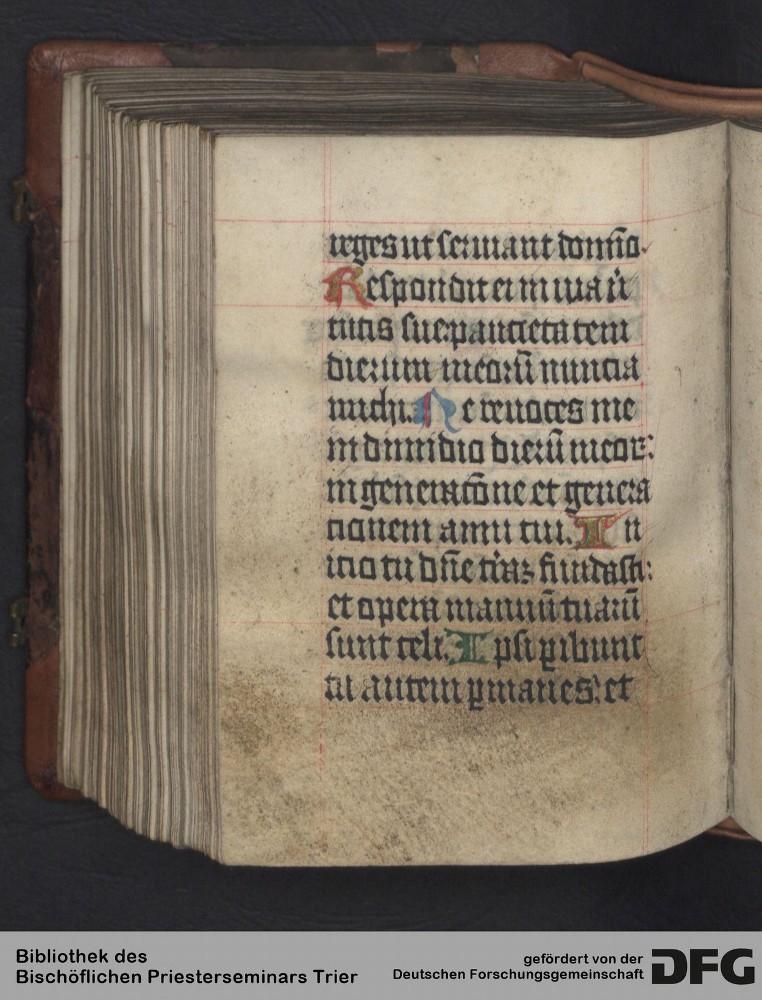 reges ut seruiant domīo.
Respondit ei in uia uͥ
tutis sue: paucitatem
dierum meorū nuncia
michi. Ne reuoces me
in dimidio dierū meoꝝ:
in generacōne et genera
cionem anni tui. In
icio tu dn̄e tr̄aꝫ fundasti:
et opera manuū tuarū
sunt celi. Ipsi ꝑibunt
tu autem ꝑmanes: et
Bibliothek des
Bischöflichen Priesterseminars Trier
gefördert von der
Deutschen Forschungsgemeinschaft
DFG